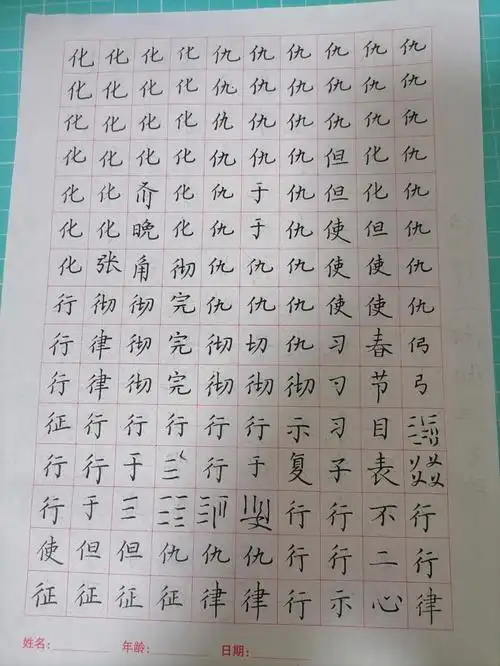 化化化化仇仇仇仇仇仇
化化化化仇仇仇仇仇仇
化化化化仇仇仇仇仇仇
化化化化仇仇仇但化仇
化化化仇于仇但化仇
化化晚化仇于仇使但仇
化张角彻仇仇仇使使仇
行彻彻完仇仇仇使使仇
行律彻完彻切仇习春
行律彻完彻彻彻节弓
征行行行行行示习目
行行于三行于复子表
行于三行行不行
使但但仇仇仇行行二行
征征征征律律行示心律
姓名: 年龄: 日期: